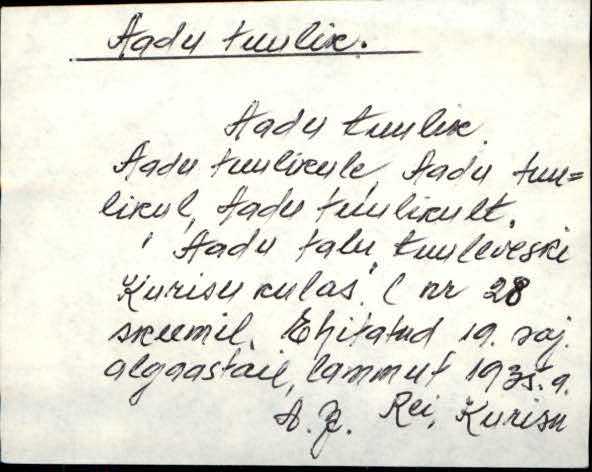 Aadu tuulik.
Aadu tuulik.
Aadu tuulikule, Aadu tuu=
likul, Aadu tuulikult.
Aadu talu tuuleveski
Kurisu külas. ( nr 28
skeemil. Ehitatud 19. saj.
algaastail, lammut 1935. a.
A. Rei, Kurisu